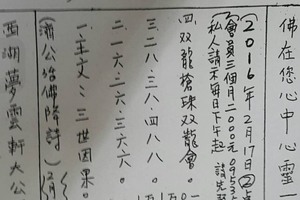 佛在您心中心靈一
2016年2月17日
會員三個月2000元0953
私人請示每日下午起
四.双龍搶珠双龍會。
三.二八.三八.四八。
二.一六.二六.三六。
一.主文:三世因果。
(濟公活佛降詩)(2月
西湖夢雲軒大公